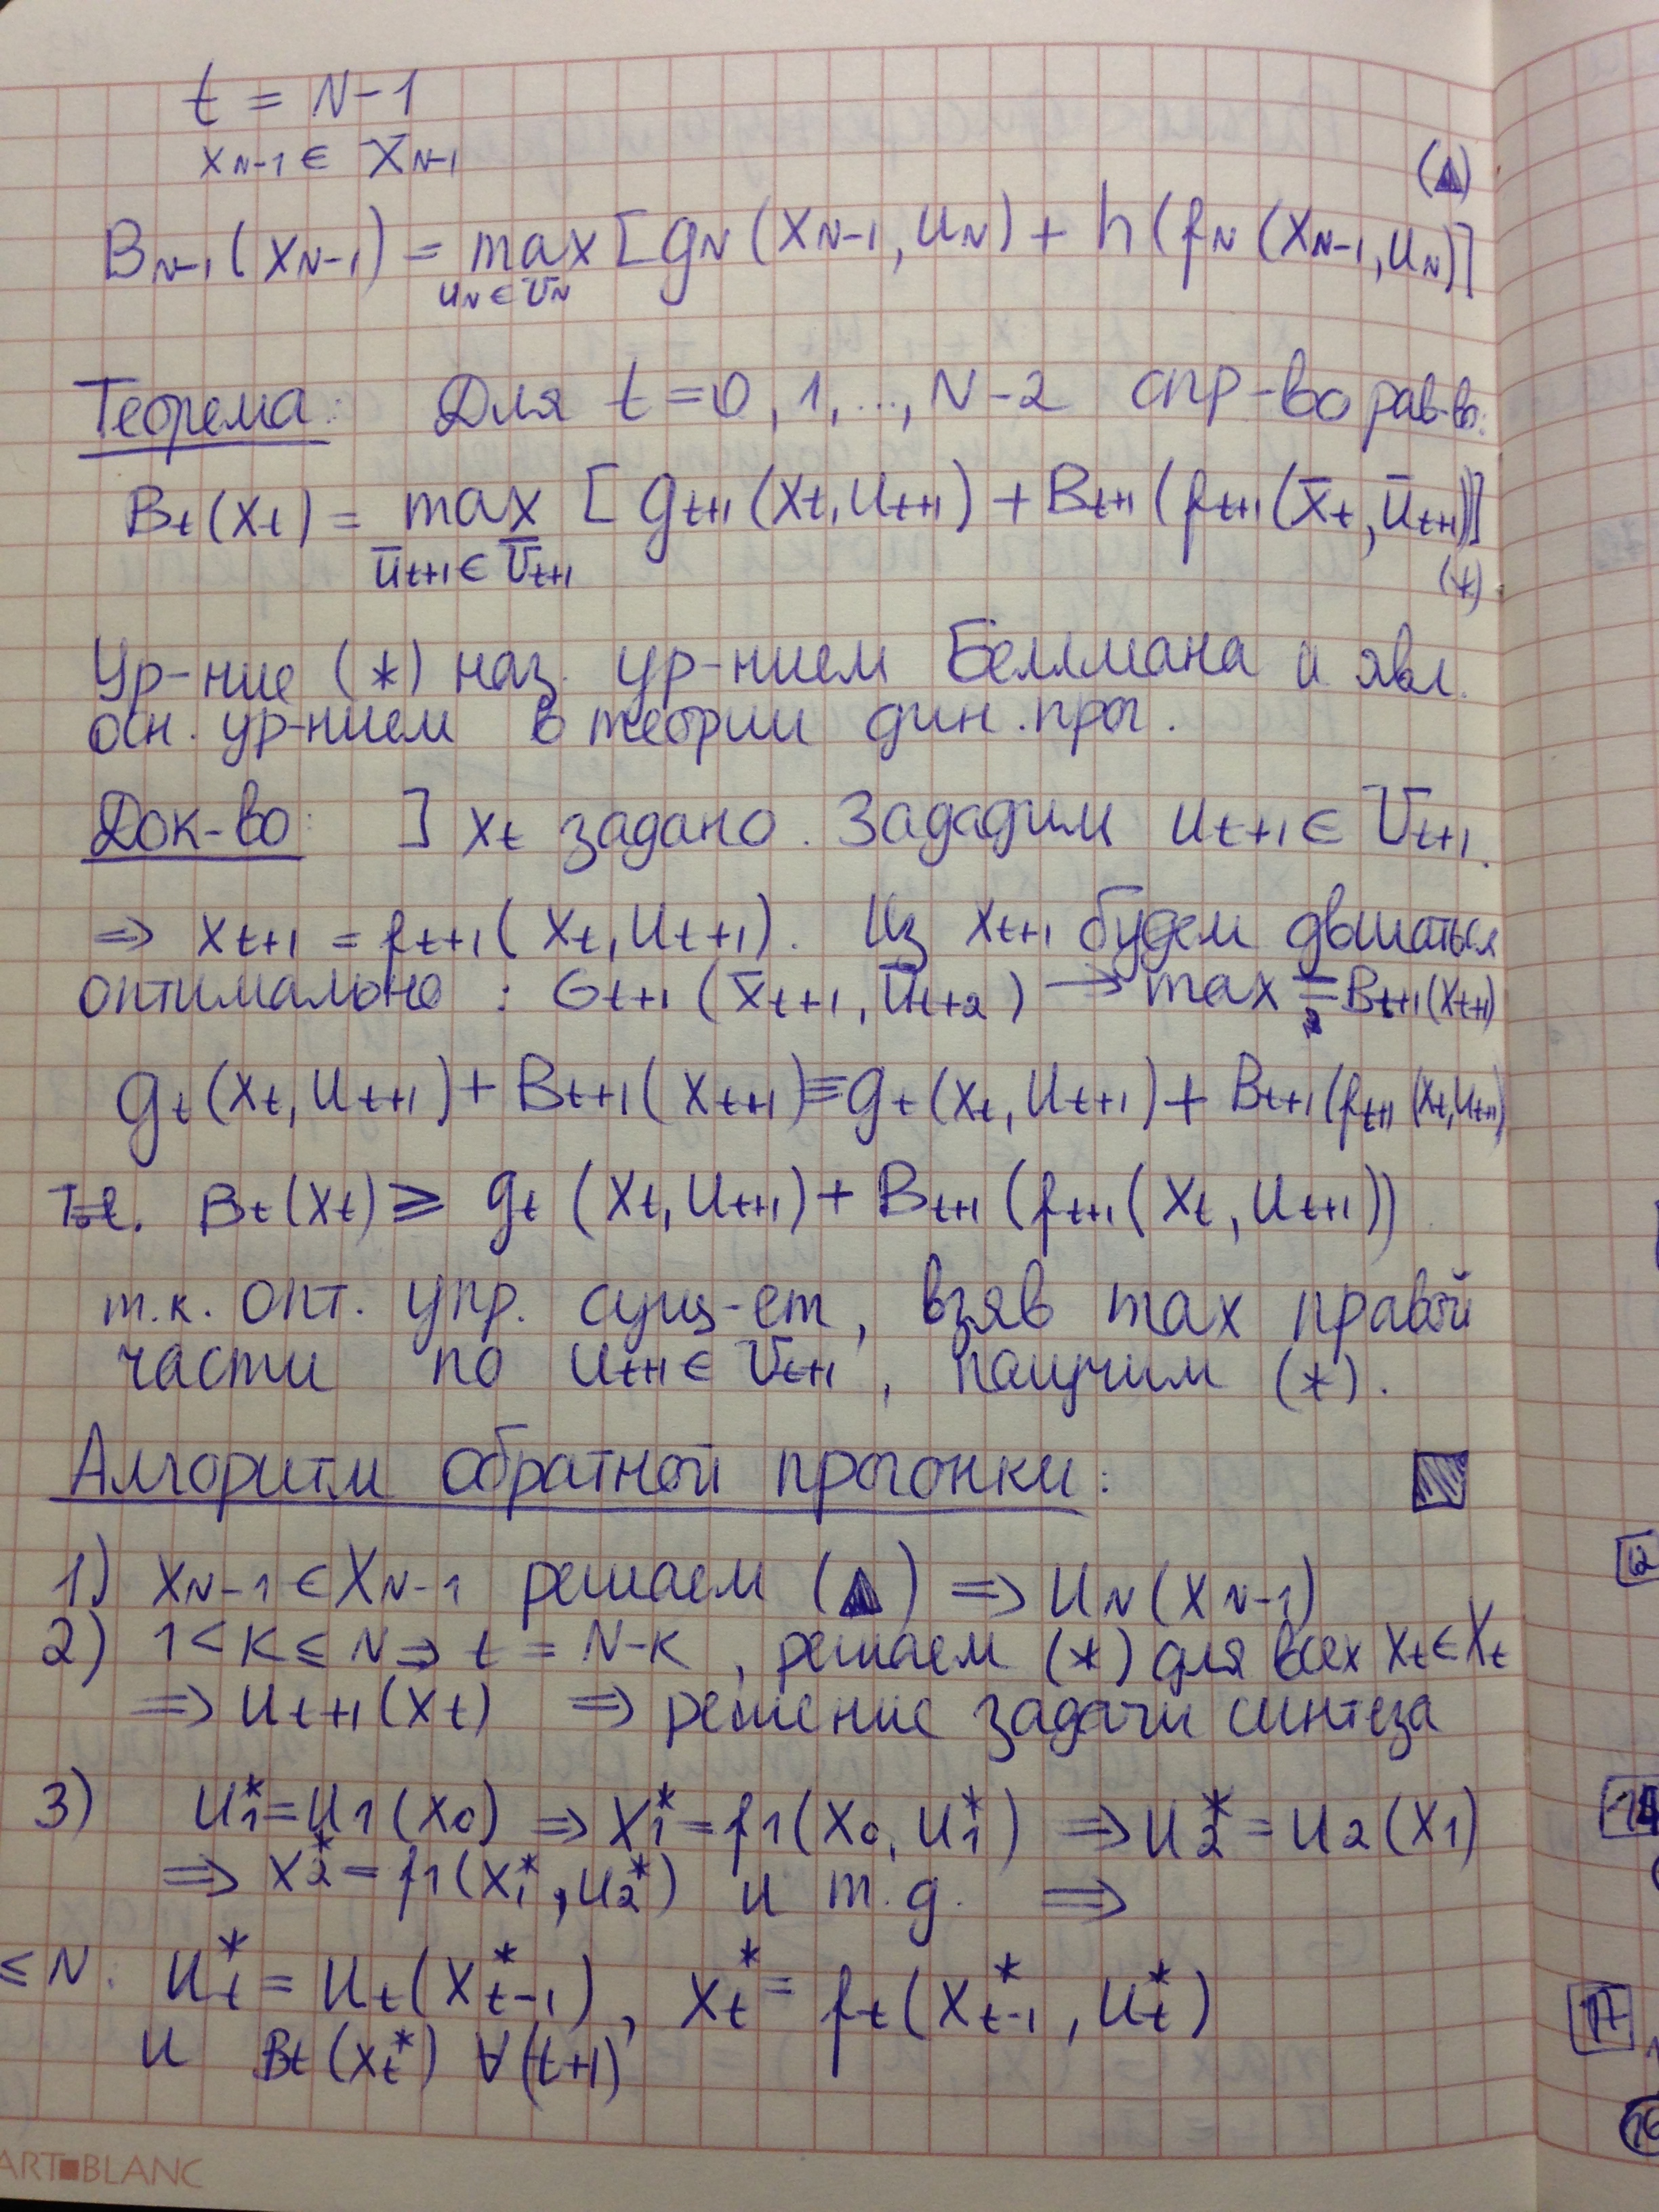 t = N-1
x_{N-1} ∈ X_{N-1}
(▲)
B_{N-1}(x_{N-1}) = max [g_N(x_{N-1}, u_N) + h(f_N(x_{N-1}, u_N)]
u_N ∈ U_N
Теорема: Для t=0,1,...,N-2 спр-во рав-во:
B_t(x_t) = max [g_{t+1}(x_t, u_{t+1}) + B_{t+1}(f_{t+1}(x̄_t, ū_{t+1}))]
ū_{t+1} ∈ Ū_{t+1}
(*)
Ур-ние (*) наз. ур-нием Беллмана и явл.
осн. ур-нием в теории дин. прог.
Док-во: ] x_t задано. Зададим u_{t+1} ∈ U_{t+1}.
⇒ x_{t+1} = f_{t+1}(x_t, u_{t+1}). Из x_{t+1} будем двигаться
оптимально: G_{t+1}(x̄_{t+1}, ū_{t+2}) → max = B_{t+1}(x_{t+1})
g_t(x_t, u_{t+1}) + B_{t+1}(x_{t+1}) = g_t(x_t, u_{t+1}) + B_{t+1}(f_{t+1}(x_t, u_{t+1})
т.е. B_t(x_t) ≥ g_t(x_t, u_{t+1}) + B_{t+1}(f_{t+1}(x_t, u_{t+1}))
т.к. опт. упр. сущ-ет, взяв max правой
части по u_{t+1} ∈ U_{t+1}, получим (*).
Алгоритм обратной прогонки:
1) x_{N-1} ∈ X_{N-1} решаем (▲) ⇒ u_N(x_{N-1})
2) 1 < k ≤ N ⇒ t = N-k, решаем (*) для всех x_t ∈ X_t
⇒ u_{t+1}(x_t) ⇒ решение задачи синтеза
3) u_1^* = u_1(x_0) ⇒ x_1^* = f_1(x_0, u_1^*) ⇒ u_2^* = u_2(x_1)
⇒ x_2^* = f_1(x_1^*, u_2^*) и т.д. ⇒
≤ N: u_t^* = u_t(x_{t-1}^*), x_t^* = f_t(x_{t-1}^*, u_t^*)
и B_t(x_t^*) ∀(t+1)
ART BLANC
17